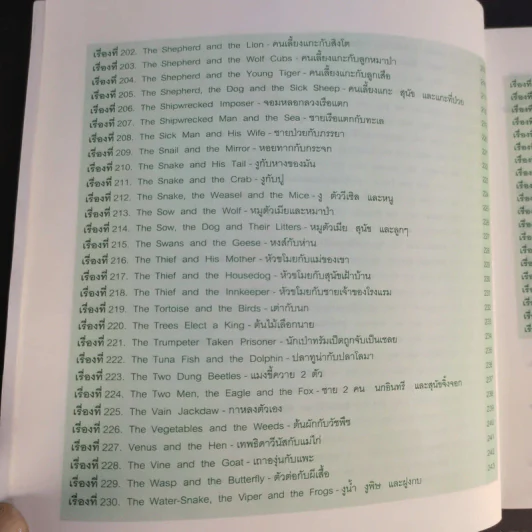 เรื่องที่ 202. The Shepherd and the Lion - คนเลี้ยงแกะกับสิงโต
เรื่องที่ 203. The Shepherd and the Wolf Cubs - คนเลี้ยงแกะกับลูกหมาป่า
เรื่องที่ 204. The Shepherd and the Young Tiger - คนเลี้ยงแกะกับลูกเสือ
เรื่องที่ 205. The Shepherd, the Dog and the Sick Sheep - คนเลี้ยงแกะ สุนัข และแกะที่ป่วย
เรื่องที่ 206. The Shipwrecked Imposer - จอมหลอกลวงเรือแตก
เรื่องที่ 207. The Shipwrecked Man and the Sea - ชายเรือแตกกับทะเล
เรื่องที่ 208. The Sick Man and His Wife - ชายป่วยกับภรรยา
เรื่องที่ 209. The Snail and the Mirror - หอยทากกับกระจก
เรื่องที่ 210. The Snake and His Tail - งูกับหางของมัน
เรื่องที่ 211. The Snake and the Crab - งูกับปู
เรื่องที่ 212. The Snake, the Weasel and the Mice - งู ตัววีเซิล และหนู
เรื่องที่ 213. The Sow and the Wolf - หมูตัวเมียและหมาป่า
เรื่องที่ 214. The Sow, the Dog and Their Litters - หมูตัวเมีย สุนัข และลูกๆ
เรื่องที่ 215. The Swans and the Geese - หงส์กับห่าน
เรื่องที่ 216. The Thief and His Mother - หัวขโมยกับแม่ของเขา
เรื่องที่ 217. The Thief and the Housedog - หัวขโมยกับสุนัขเฝ้าบ้าน
เรื่องที่ 218. The Thief and the Innkeeper - หัวขโมยกับชายเจ้าของโรงแรม
เรื่องที่ 219. The Tortoise and the Birds - เต่ากับนก
เรื่องที่ 220. The Trees Elect a King - ต้นไม้เลือกนาย
เรื่องที่ 221. The Trumpeter Taken Prisoner - นักเป่าทรัมเป็ตถูกจับเป็นเชลย
เรื่องที่ 222. The Tuna Fish and the Dolphin - ปลาทูน่ากับปลาโลมา
เรื่องที่ 223. The Two Dung Beetles - แมงขี้ควาย 2 ตัว
เรื่องที่ 224. The Two Men, the Eagle and the Fox - ชาย 2 คน นกอินทรี และสุนัขจิ้งจอก
เรื่องที่ 225. The Vain Jackdaw - กาหลงตัวเอง
เรื่องที่ 226. The Vegetables and the Weeds - ต้นผักกับวัชพืช
เรื่องที่ 227. Venus and the Hen - เทพธิดาวีนัสกับแม่ไก่
เรื่องที่ 228. The Vine and the Goat - เถาองุ่นกับแพะ
เรื่องที่ 229. The Wasp and the Butterfly - ตัวต่อกับผีเสื้อ
เรื่องที่ 230. The Water-Snake, the Viper and the Frogs - งูน้ำ งูพิษ และฝูงกบ